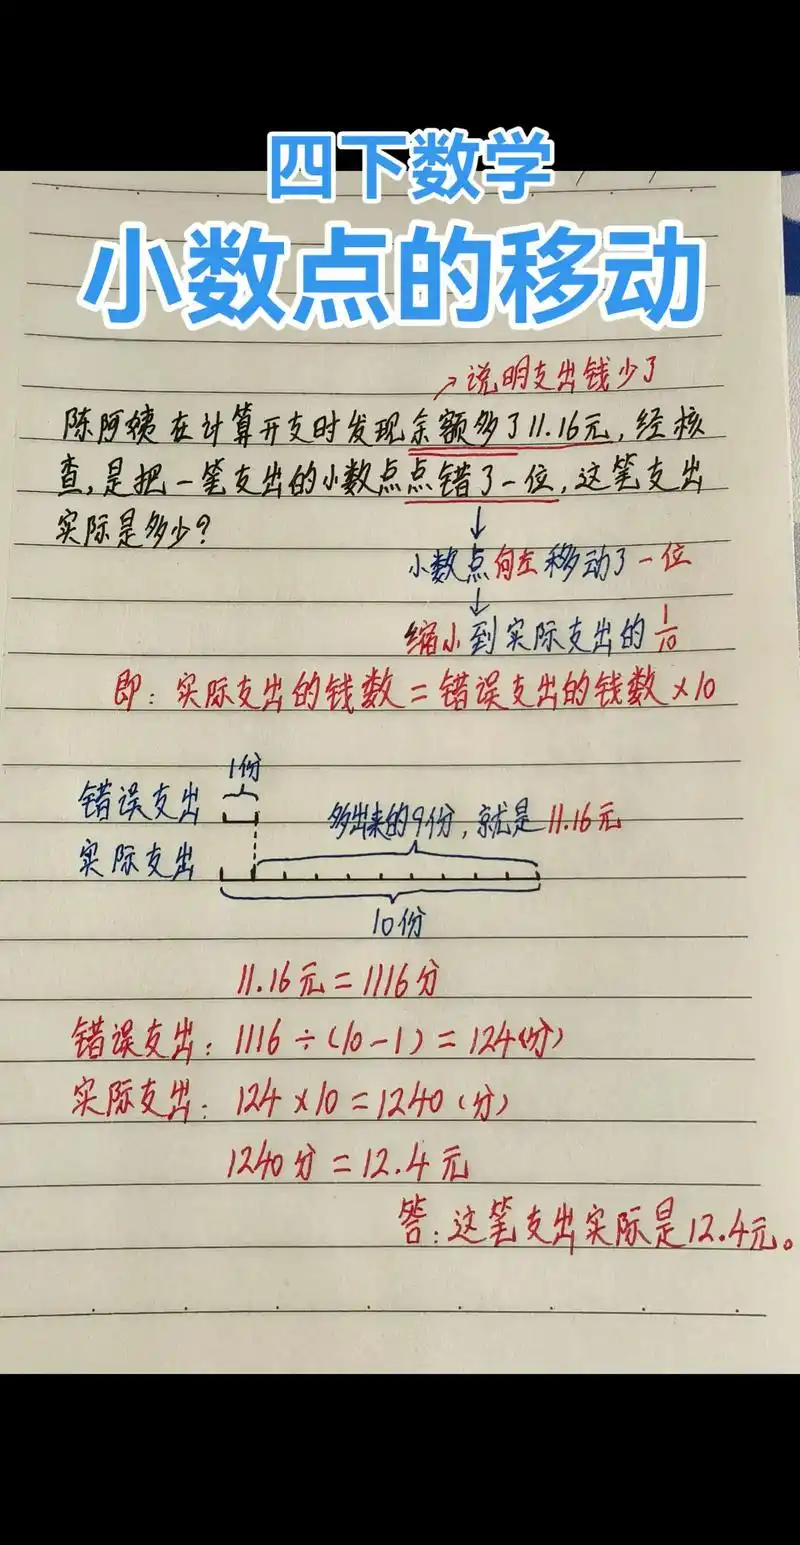 四下数学
小数点的移动
↗说明支出钱少了
陈阿姨在计算开支时发现余额多了11.16元,经核
查,是把一笔支出的小数点点错了一位,这笔支出
实际是多少?
↓
小数点向左移动了一位
↓
缩小到实际支出的1/10
即:实际支出的钱数=错误支出的钱数×10
1份
错误支出
多出来的9份,就是11.16元
实际支出
10份
11.16元=1116分
错误支出:1116÷(10-1)=124(分)
实际支出:124×10=1240(分)
1240分=12.4元
答:这笔支出实际是12.4元。